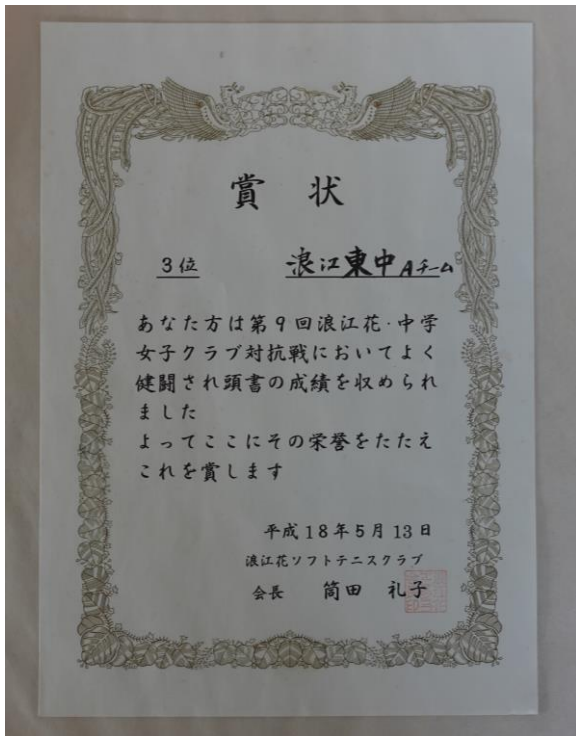 賞状
3位 浪江東中Aチーム
あなた方は第9回浪江花・中学
女子クラブ対抗戦においてよく
健闘され頭書の成績を収められ
ました
よってここにその栄誉をたたえ
これを賞します
平成18年5月13日
浪江花ソフトテニスクラブ
会長 筒田 礼子